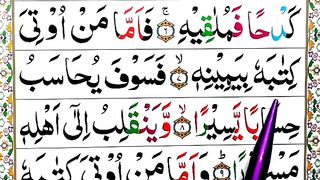 كَدْحًا فَمُلٰقِيْهِ ۚ ﴿٦﴾ فَاَمَّا مَنْ اُوْتِىَ
كِتٰبَهٗ بِيَمِيْنِهٖ ۙ ﴿٧﴾ فَسَوْفَ يُحَاسَبُ
حِسَابًا يَّسِيْرًا ۙ ﴿٨﴾ وَّيَنْقَلِبُ اِلٰٓى اَهْلِهٖ
﴿٩﴾ وَاَمَّا مَنْ اُوْتِىَ كِتٰبَهٗ